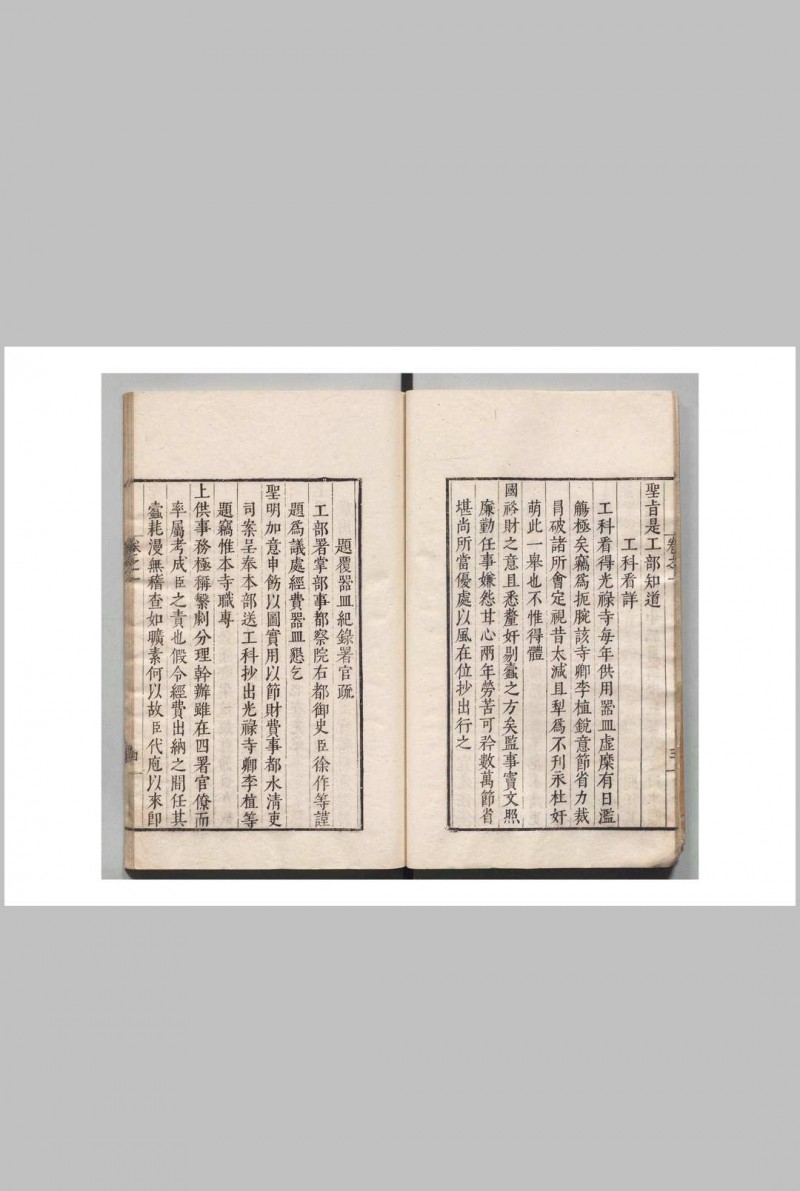 聖旨是工部知道
工科看詳
工科看得光祿寺每年供用器皿虛糜有日濫
觴極矣竊為扼腕該寺卿李植銳意節省力裁
冒破諸所會定視昔太減且犁為不刊永杜奸
萌此一舉也不惟得體
國裕財之意且悉釐奸剔蠹之方矣監事竇文照
廉勤任事嫌怨甘心兩年勞苦可矜數萬節省
堪尚所當優處以風在位抄出行之
題覆器皿紀錄署官疏
工部署掌部事都察院右都御史臣徐作等謹
題為議處經費器皿懇乞
聖明加意申飭以圖實用以節財費事都水清吏
司案呈奉本部送工科抄出光祿寺卿李植等
題竊惟本寺職專
上供事務極稱繁劇分理幹辦雖在四署官僚而
率屬考成臣之責也假令經費出納之間任其
蠹耗漫無稽查如曠素何以故臣代庖以來即